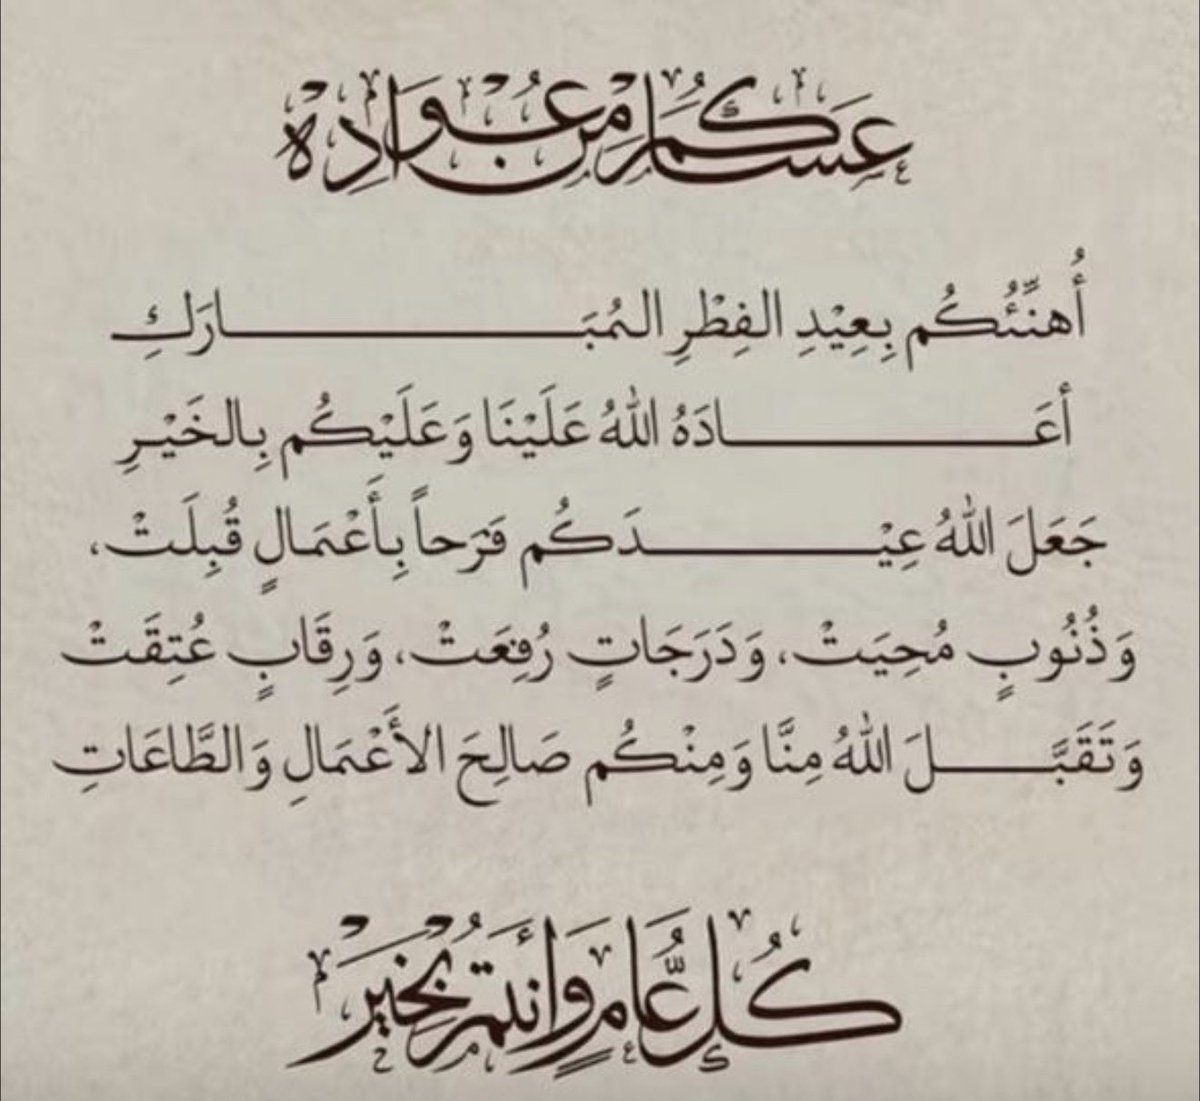 عِسَاكُم مِن عُوَّادِهْ
أُهنِّئُكُم بِعِيْدِ الفِطْرِ المُبَـــــــــارَكِ
أعَـــــــــادَهُ اللهُ عَلَيْنَا وَعَلَيْكُم بِالخَيْرِ
جَعَلَ اللهُ عِيْـــــــــدَكُم فَرَحاً بِأَعْمَالٍ قُبِلَتْ،
وَذُنُوبٍ مُحِيَتْ، وَدَرَجَاتٍ رُفِعَتْ، وَرِقَابٍ عُتِقَتْ
وَتَقَبَّـــــــلَ اللهُ مِنَّا وَمِنْكُم صَالِحَ الأَعْمَالِ وَالطَّاعَاتِ
كُلُّ عَامٍ وَأَنْتُمْ بِخَيْرْ